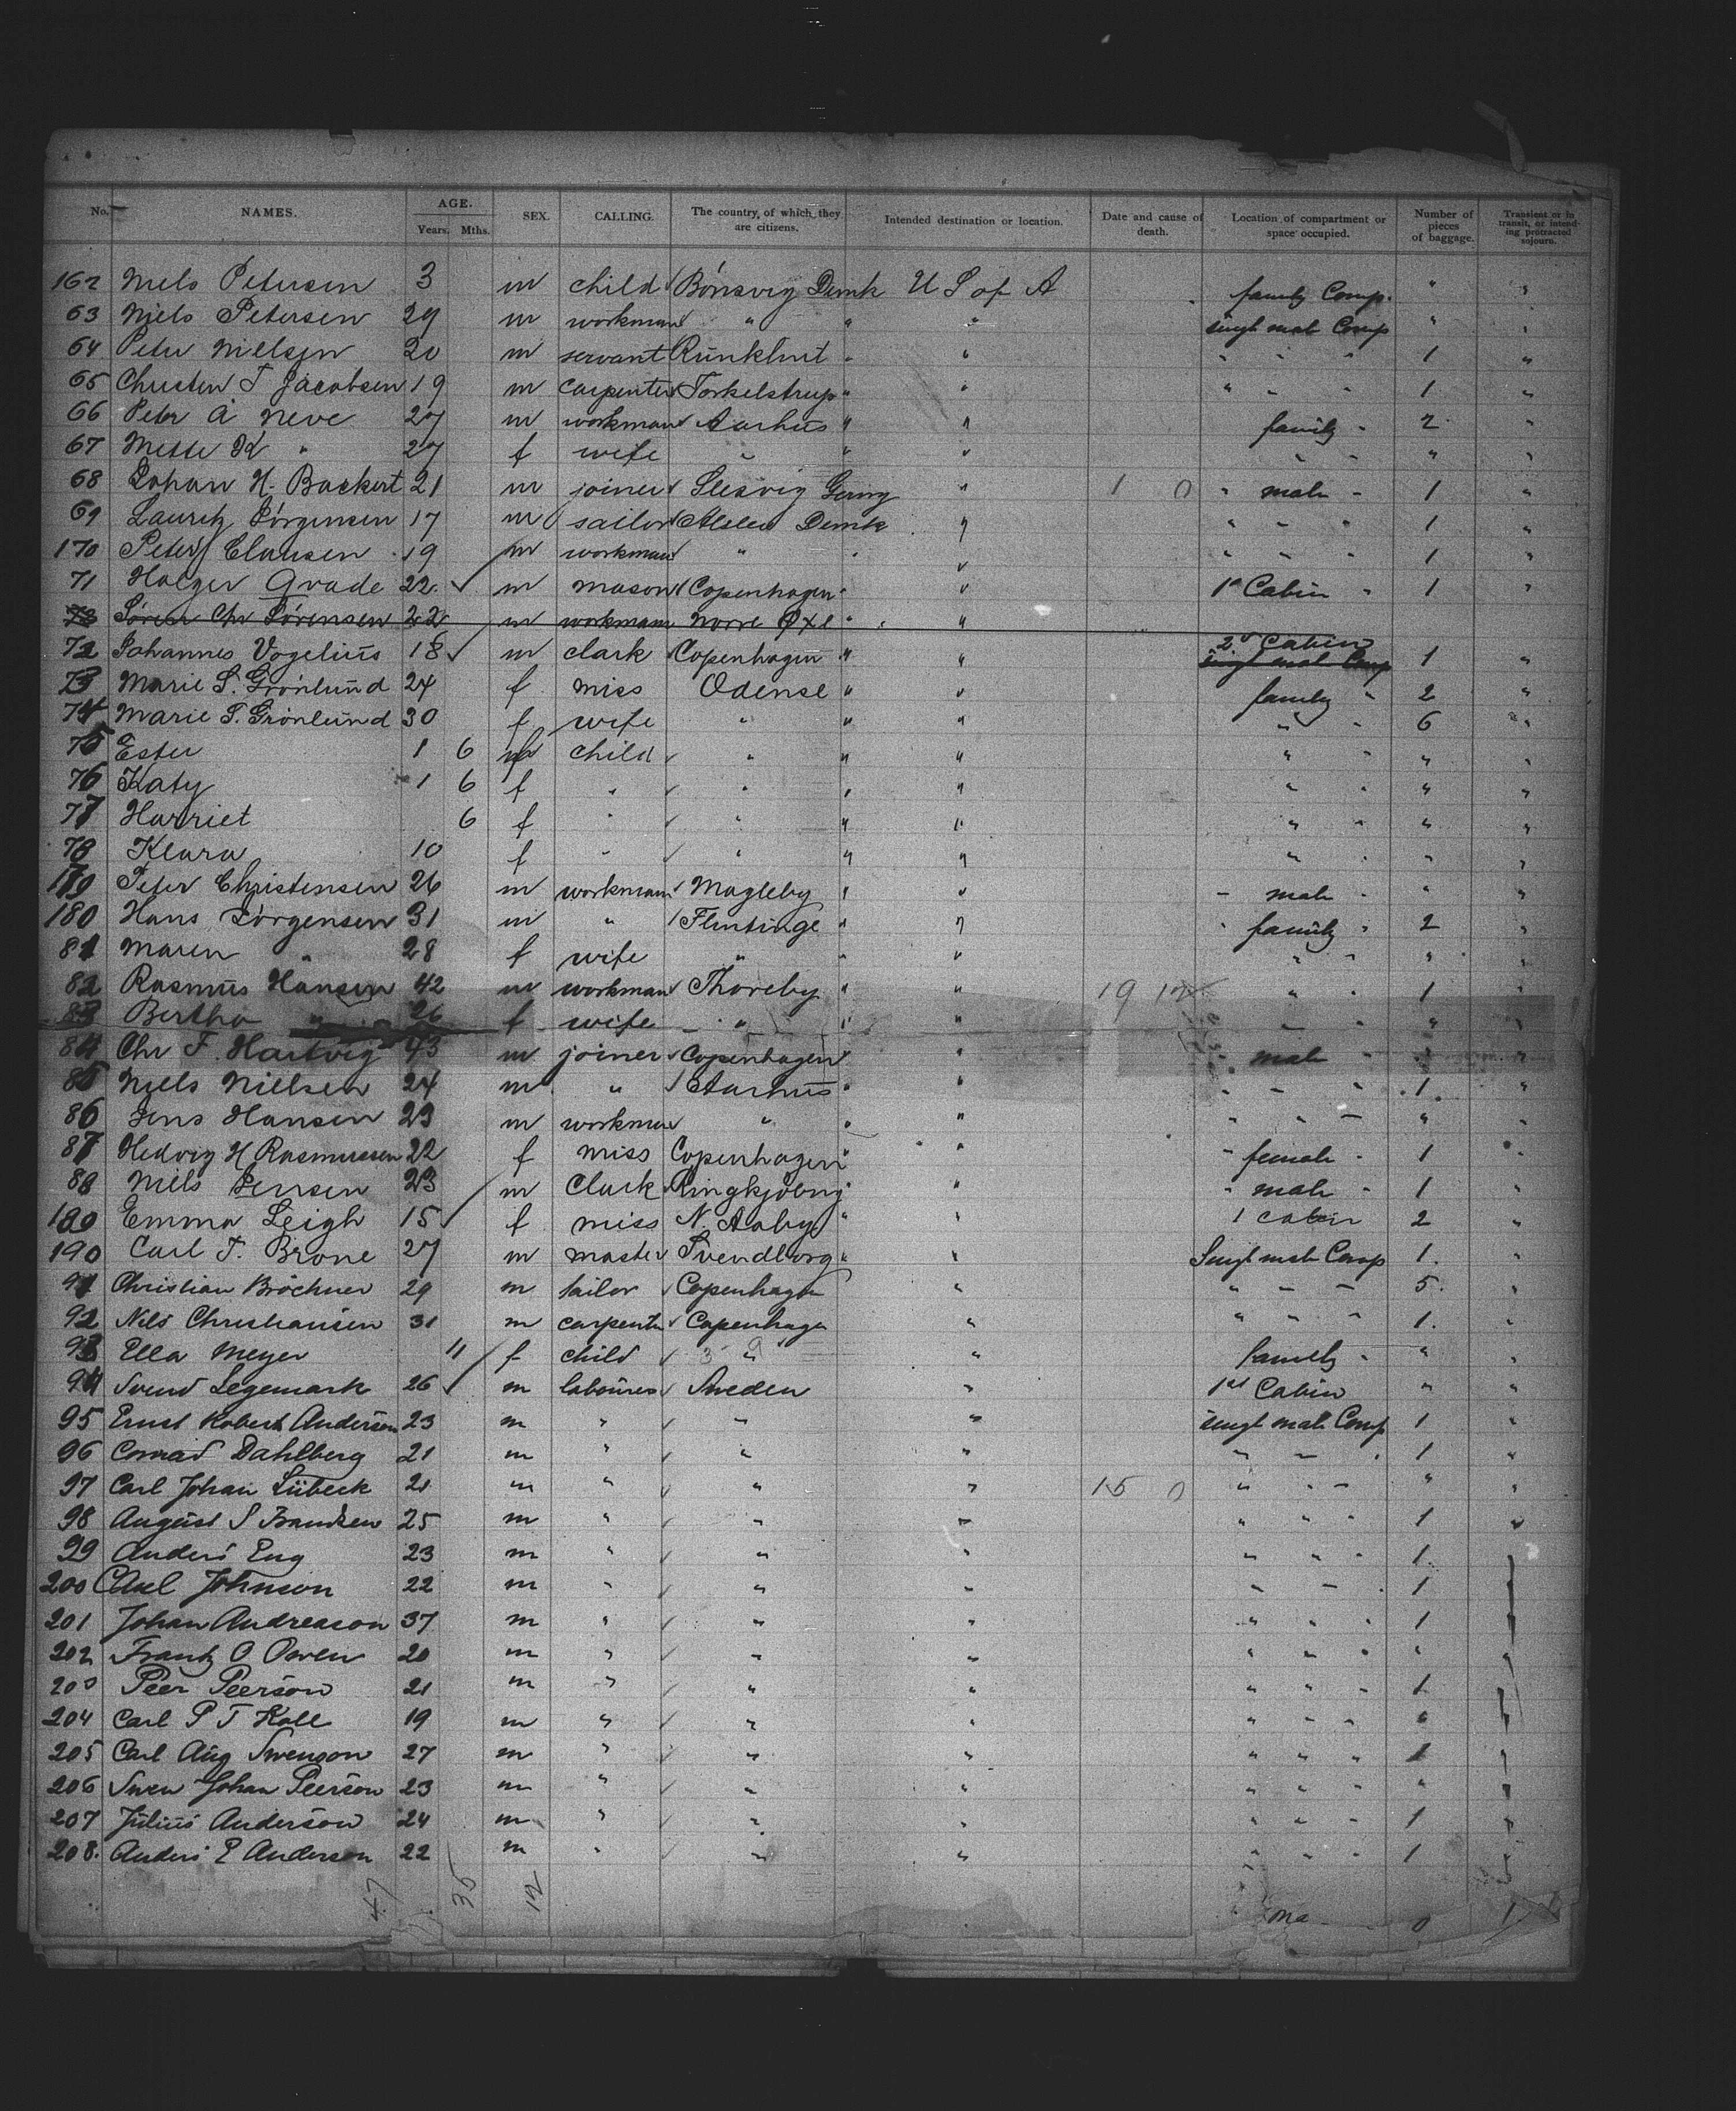 No. NAMES. AGE. Years. Mths. SEX. CALLING. The country, of which they are citizens. Intended destination or location. Date and cause of death. Location of compartment or space occupied. Number of pieces of baggage. Transient or in transit, or intending protracted sojourn.
162 Niels Petersen 3 m child Bönsvig Dmk U S of A family Comp. " "
63 Niels Petersen 29 m workman " " " singl male Comp " "
64 Peter Nielsen 20 m servant " " " " " 1 "
65 Christen T Jacobsen 19 m carpenter Torkelstrup " " " " " 1 "
66 Peter A Neve 27 m workman Aarhus " " family " 2 "
67 Mette K " 27 f wife " " " " " " "
68 Johan H. Backert 21 m joiner Slesvig Germy " 1 0 " male " 1 "
69 Lauritz Jörgensen 17 m sailor Dmk " " " " 1 "
170 Peter Clausen 19 m workman " " " " " " 1 "
71 Holger Grade 22 m mason Copenhagen " " 1st Cabin " 1 "
73 Sören Chr Sörensen 22 m workman Norre Øxe " "
72 Johannes Vogelius 18 m clark Copenhagen " " 2d Cabin singl male Comp 1 "
73 Marie S. Grönlund 24 f miss Odense " " family " 2 "
74 Marie S. Grönlund 30 f wife " " " " " 6 "
75 Ester 1 6 f child " " " " " " "
76 Katy 1 6 f " " " " " " " "
77 Harriet 6 f " " " " " " " "
78 Klara 10 f " " " " " " " "
179 Peter Christensen 26 m workman Magleby " " " male " " "
180 Hans Jörgensen 31 m " Flintinge " " " family " 2 "
81 Maren " 28 f wife " " " " " " "
82 Rasmus Hansen 42 m workman Thoreby " " 19 12 " " 1 "
83 Bertha " 26 f wife " " " " " " "
84 Chr F. Hartvig 43 m joiner Copenhagen " " " male " " "
85 Niels Nielsen 24 m " Aarhus " " " " " 1. "
86 Jens Hansen 23 m workman " " " " " " " "
87 Hedvig H Rasmussen 22 f miss Copenhagen " " " female " 1 "
88 Niels Jensen 23 m Clark Ringkjöbing " " " male " 1 "
189 Emma Leigh 15 f miss N. Aaby " " 1 cabin 2 "
190 Carl F. Brone 27 m master Svendborg " " Singl male Comp 1. "
91 Christian Bröchner 29 m tailor Copenhagen " " " " 5. "
92 Nils Christiansen 31 m carpenter Copenhagen " " " " 1. "
93 Ella Meyer 11 f child " 3 9 " family " " "
94 Svend Legemark 26 m labourer Sweden " 1st Cabin " "
95 Ernst Robert Anderson 23 m " " " singl male Comp 1 "
96 Conrad Dahlberg 21 m " " " " " " 1 "
97 Carl Johan Lübeck 21 m " " " 15 0 " " " " "
98 August S Frandsen 25 m " " " " " " 1 "
99 Anders Eng 23 m " " " " " " 1 "
200 Axel Johnson 22 m " " " " " " 1 "
201 Johan Andreason 37 m " " " " " " 1 "
202 Frantz O Owen 20 m " " " " " " " "
203 Peer Peerson 21 m " " " " " " 1 "
204 Carl P T Kall 19 m " " " " " " " "
205 Carl Aug Swenson 27 m " " " " " " 1 "
206 Swen Johan Peerson 23 m " " " " " " " "
207 Julius Anderson 24 m " " " " " " 1 "
208. Anders E Anderson 22 m " " " " " " 1 "
47 35 12